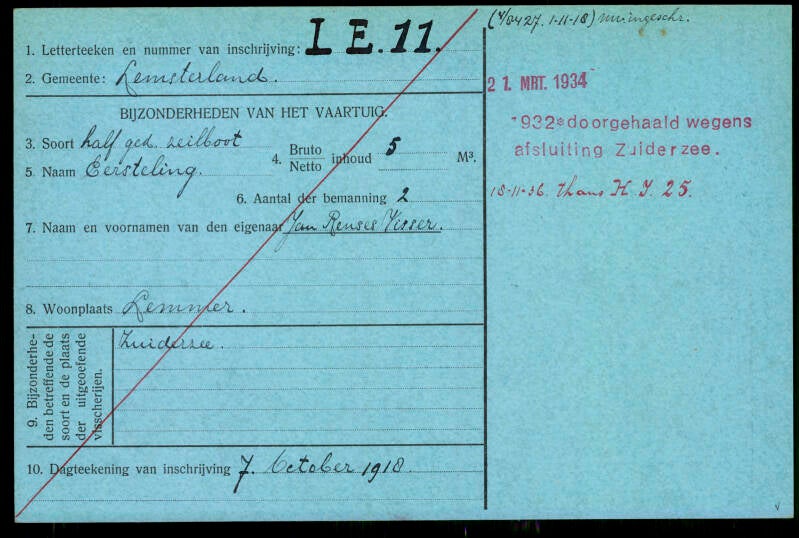 1. Letterteeken en nummer van inschrijving: LE.11.
2. Gemeente: Lemsterland.
BIJZONDERHEDEN VAN HET VAARTUIG.
3. Soort half ged. zeilboot
4. Bruto Netto inhoud 5 M³.
5 Naam Eersteling.
6. Aantal der bemanning 2
7. Naam en voornamen van den eigenaar Jan Renses Visser.
8. Woonplaats Lemmer.
9. Bijzonderhe-
den betreffende de
soort en de plaats
der uitgeoefende
visscherijen.
Zuiderzee.
10. Dagteekening van inschrijving 7. October 1918.
1-11-18)
21. MRT. 1934
1932 doorgehaald wegens
afsluiting Zuiderzee.
18-11-36. thans H I. 25.